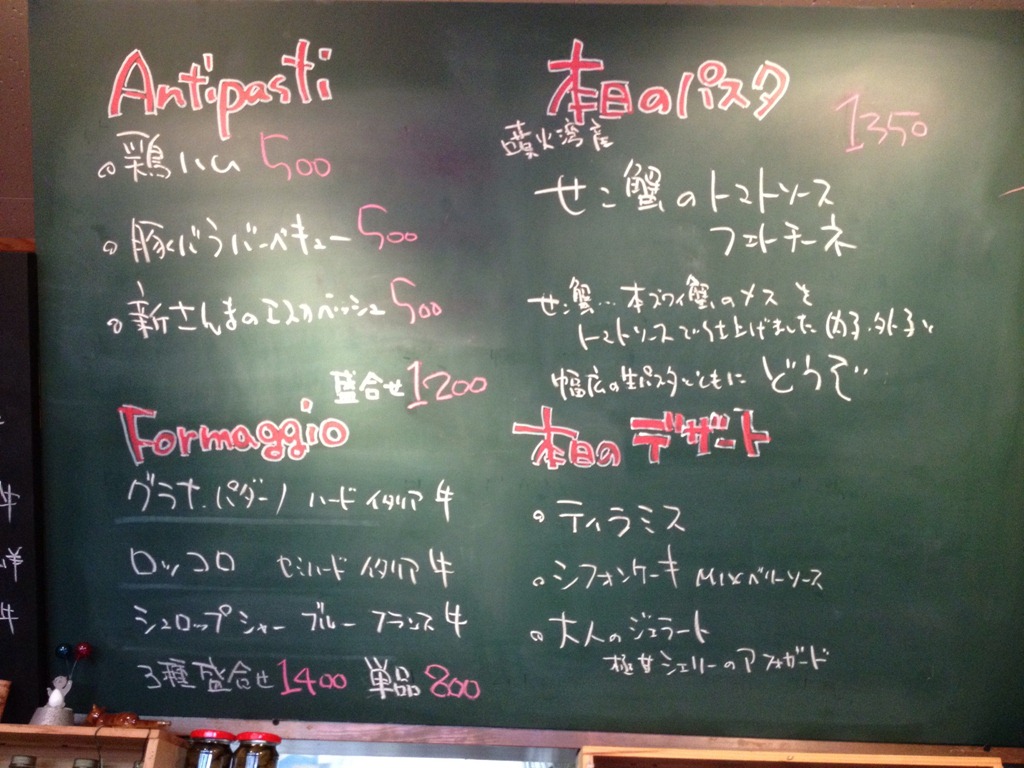 Antipasti
鶏ハム 500
豚バラバーベキュー 500
新さんまのエスカベッシュ 500
盛合せ 1200
Formaggio
グラナ.パダーノ ハード イタリア 牛
ロッコロ セミハード イタリア 牛
シュロップシャー ブルー フランス 牛
3種盛合せ 1400 単品 800
本日のパスタ
1350
噴火湾産
せこ蟹のトマトソース
フェトチーネ
せこ蟹...本ズワイ蟹のメスを
トマトソースで仕上げました(内子.外子)
幅広の生パスタとともに どうぞ
本日のデザート
ティラミス
シフォンケーキ MIXベリーソース
大人のジェラート
極甘シェリーのアフォガード
牛
羊
牛